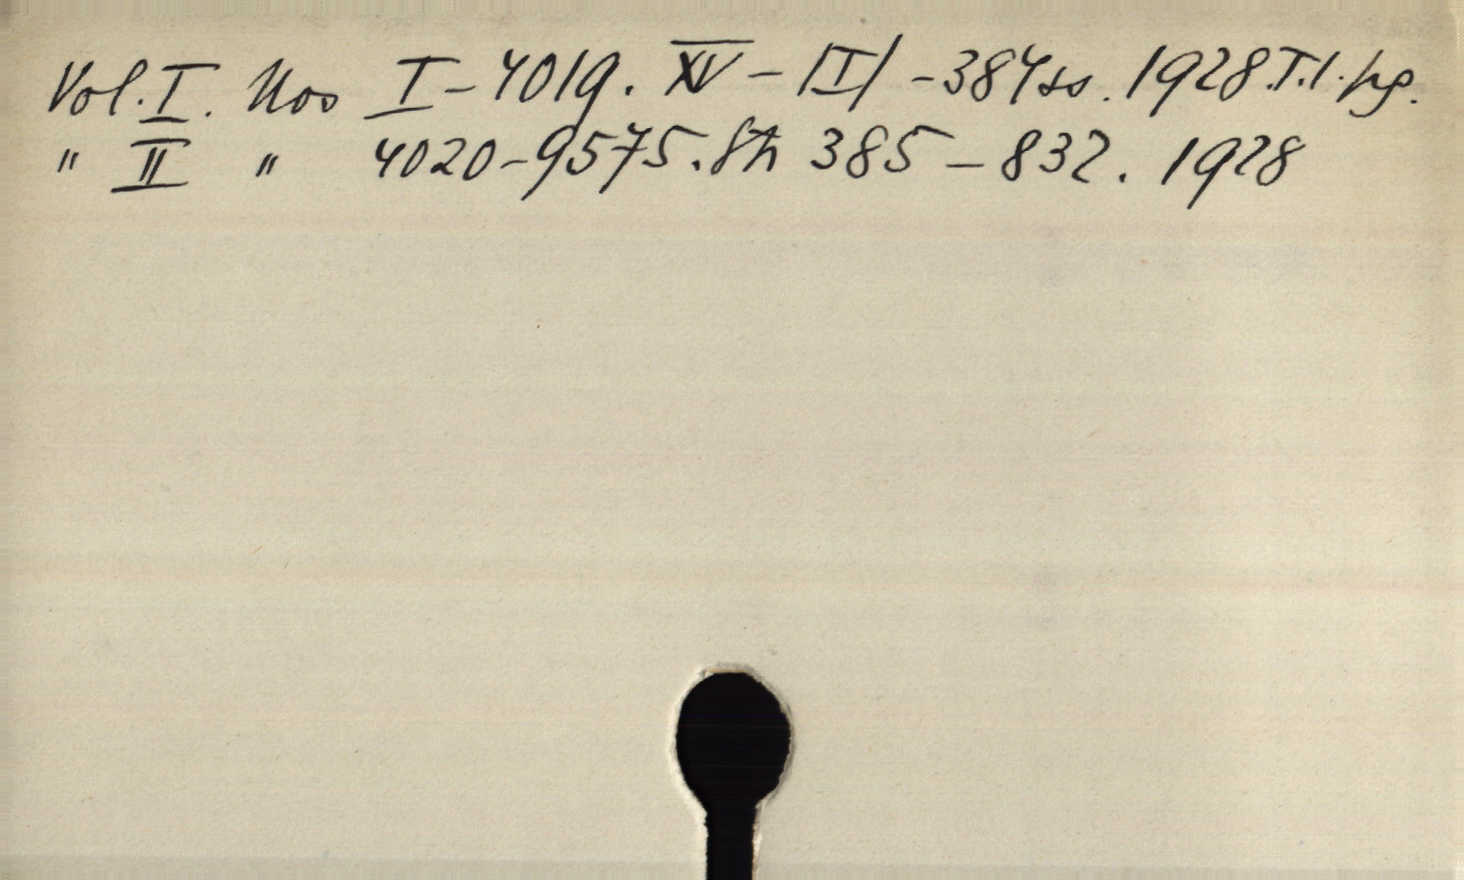 Vol. I. Nos I-4019. XV - /I/ -384 ss. 1928. T.l. pg.
" II " 4020-9575. 385 - 832. 1928